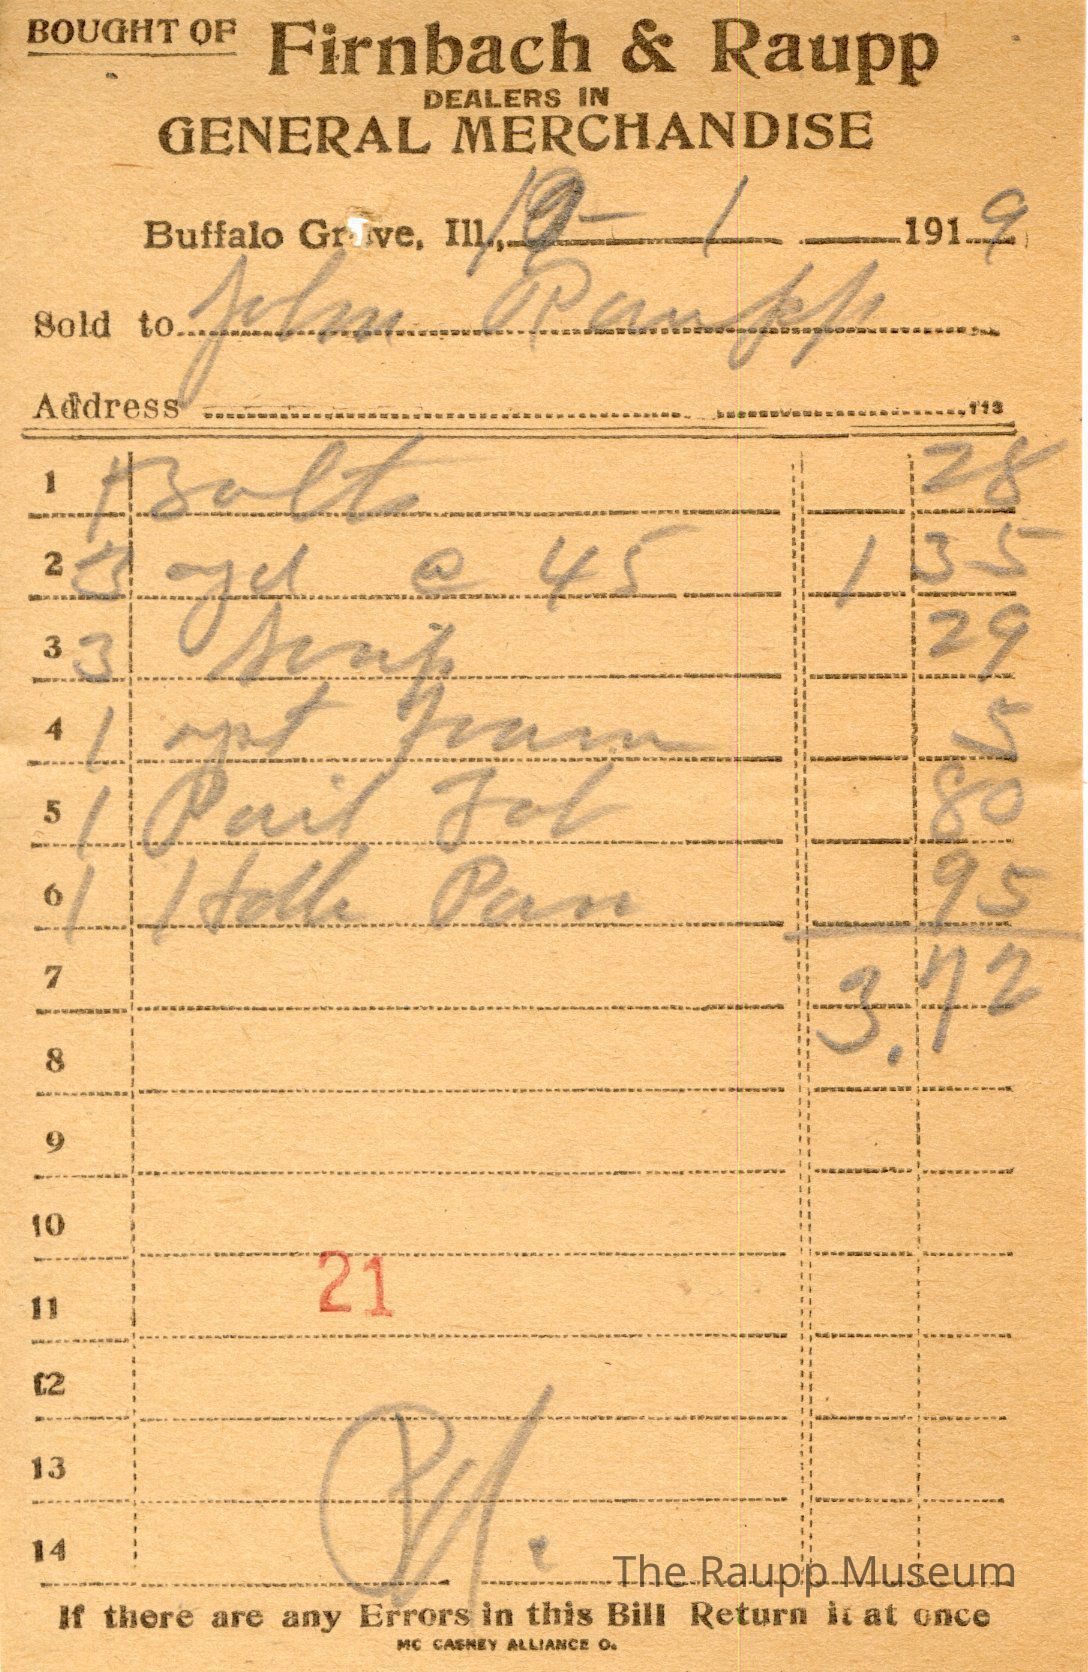 BOUGHT OF Firnbach & Raupp
DEALERS IN
GENERAL MERCHANDISE
Buffalo Grove, Ill., 19 - 1 1919
Sold to John Raupp
Address 113
1 Bolts 28
2 3 yd @ 45 1 35
3 3 29
4 1 5
5 1 Pail 80
6 1 Pan 95
7 3.72
8
9
10
21
11
12
13
14
The Raupp Museum
If there are any Errors in this Bill Return it at once
MC CASKEY ALLIANCE O.